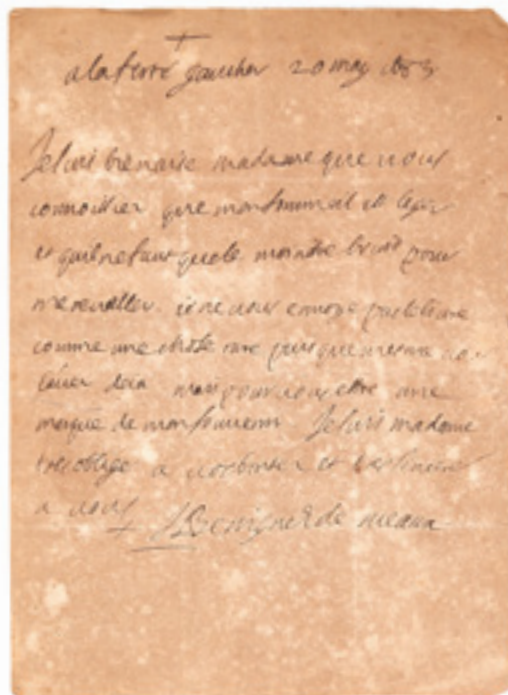 a la ferté gaucher 20 may
Je suis bienaise madame que vous
connoissiez que mon sommeil est leger
et quil ne faut que le moindre bruit pour
me reveiller. ie ne vous envoye pas
comme une chose rare puisque mesme
deia mais pour vous estre une
marque de mon souvenir. Je suis madame
tres oblige a et
a vous
J Benigne E de meaux